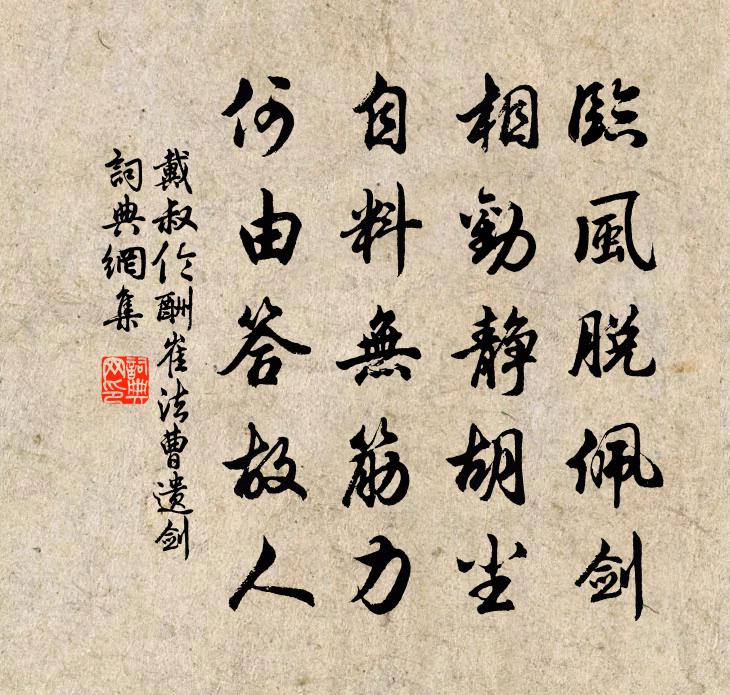 臨風脱佩剑
相勸静胡尘
自料無筋力
何由答故人
戴叔伦酬崔法曹遗剑
詞典網集
詞典
网印